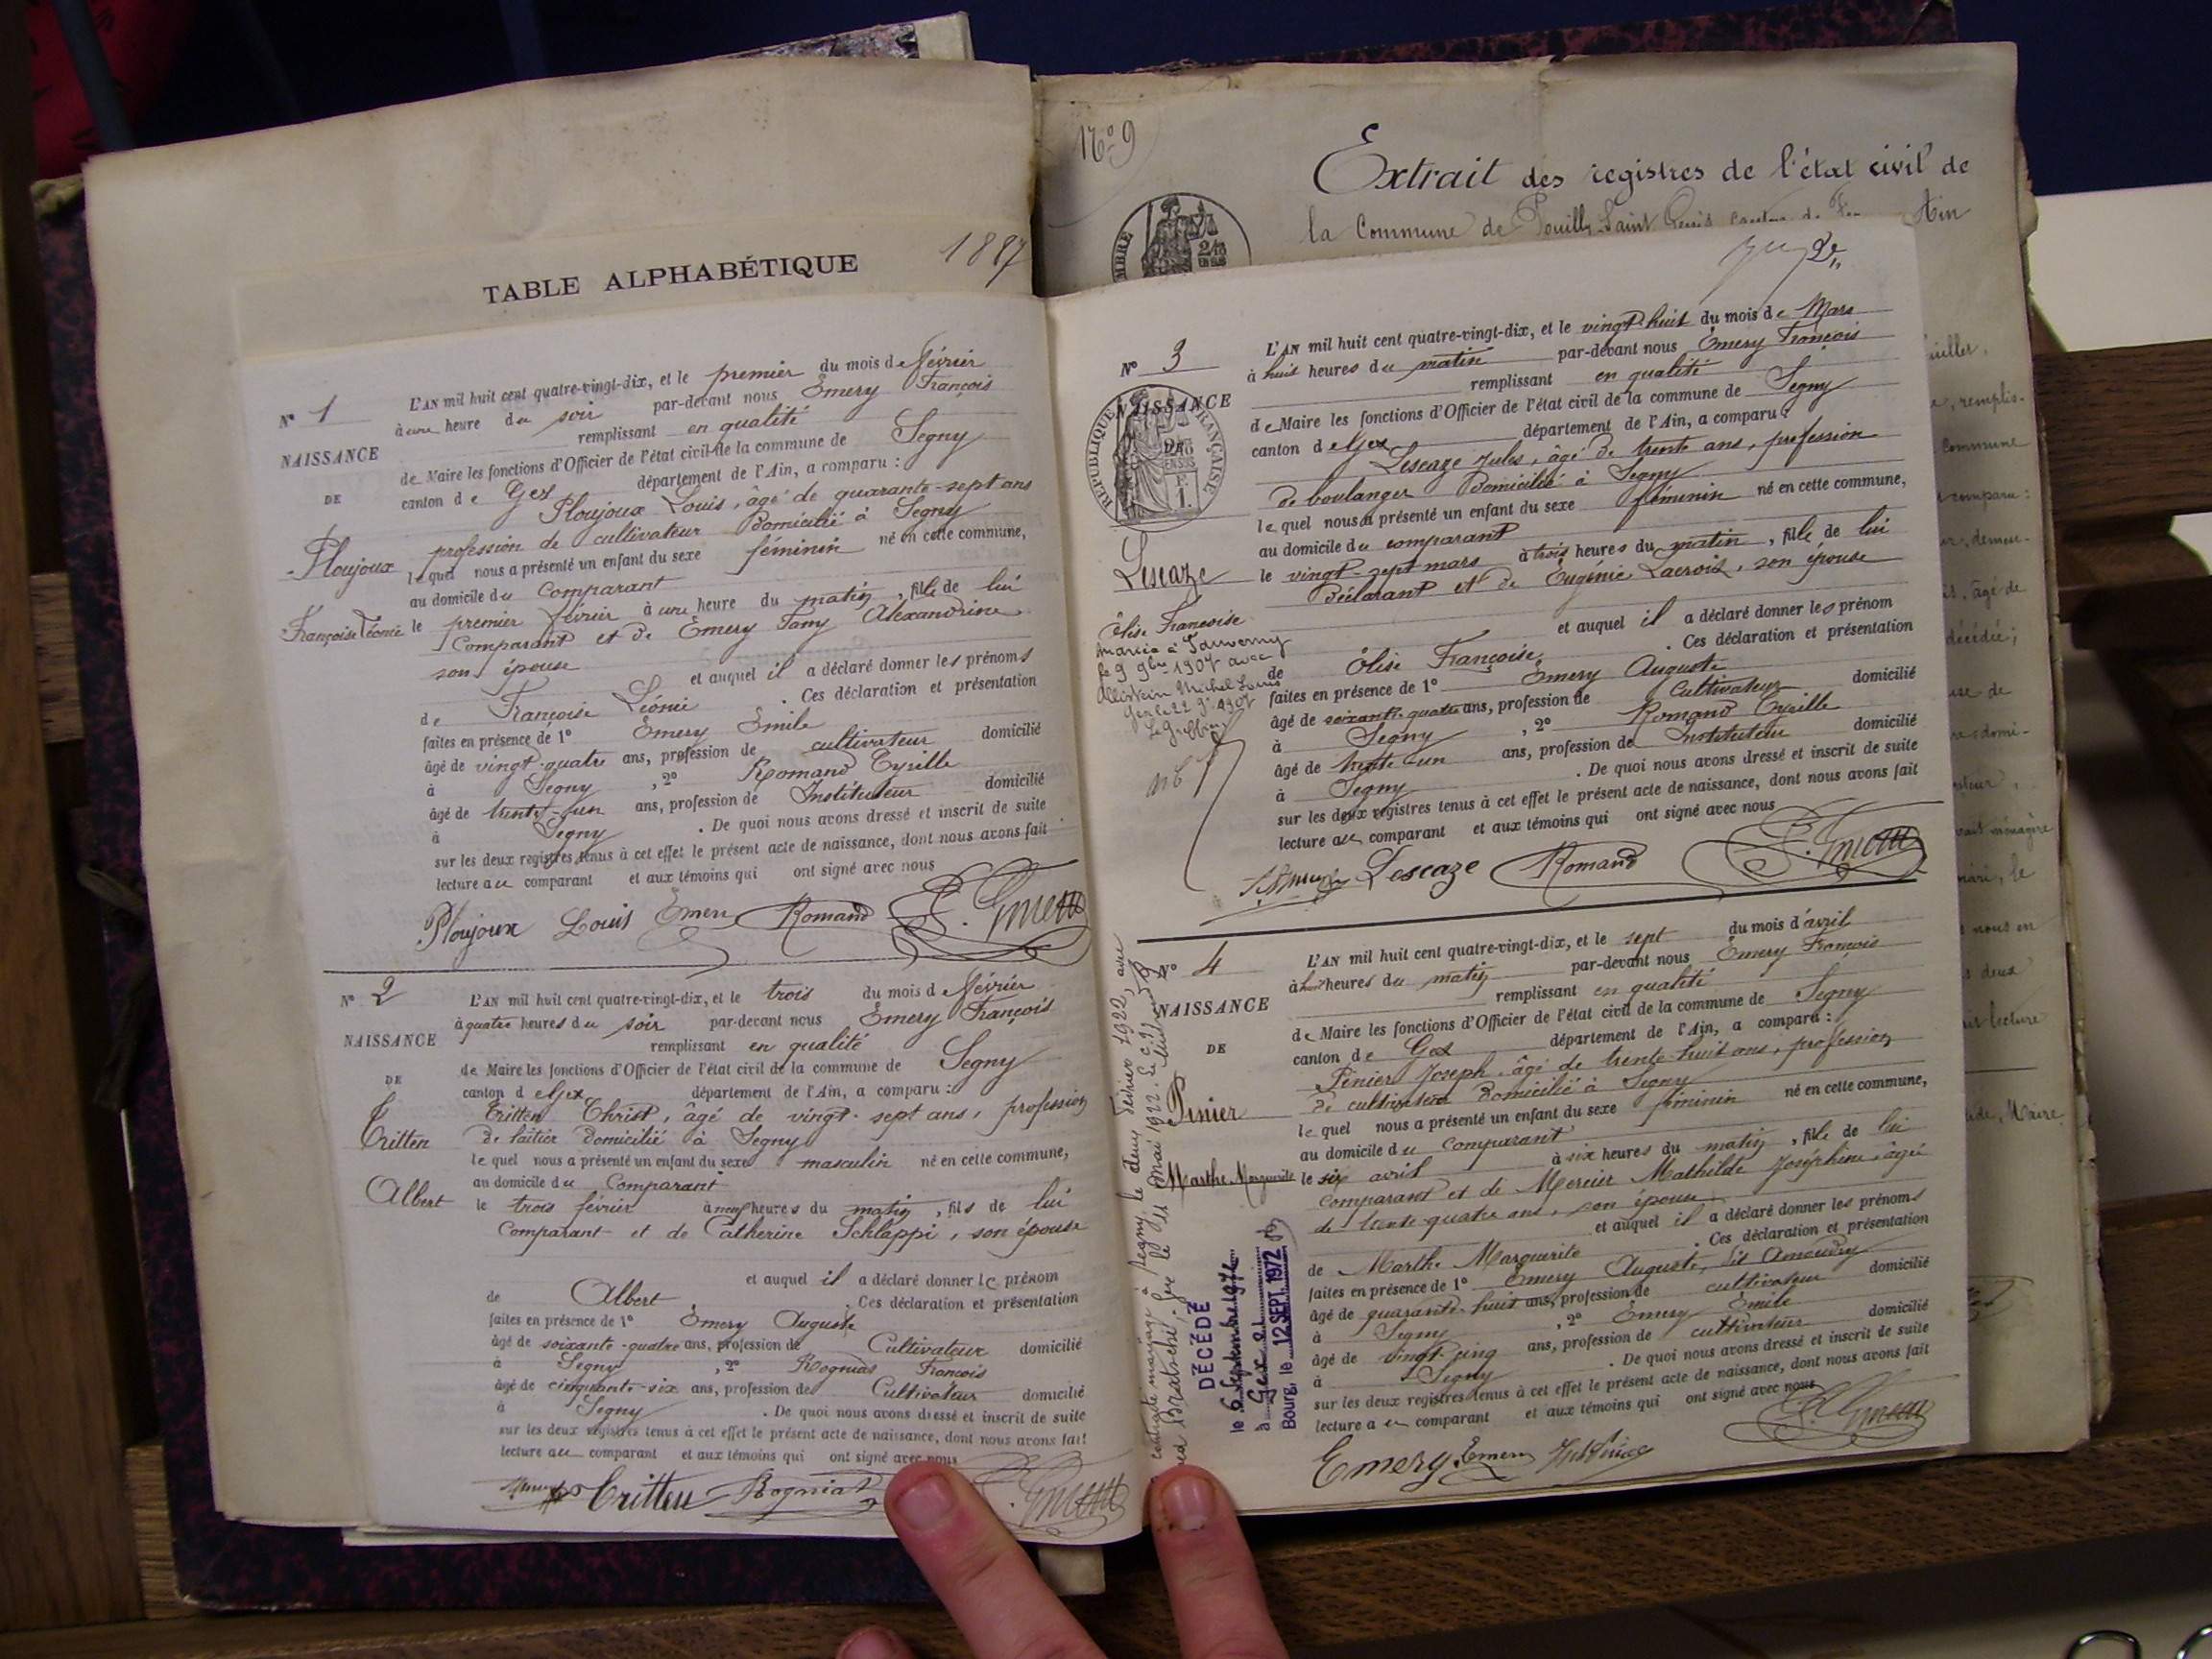 TABLE ALPHABÉTIQUE
1887
N° 1
NAISSANCE
DE
Ploujoux
Françoise Léonie
L'AN mil huit cent quatre-vingt-dix, et le premier du mois de février
à une heure du soir par-devant nous Emery François
remplissant en qualité
de Maire les fonctions d'Officier de l'état civil de la commune de Segny
canton de Gex département de l'Ain, a comparu :
Ploujoux Louis, âgé de quarante-sept ans
profession de cultivateur domicilié à Segny
lequel nous a présenté un enfant du sexe féminin né en cette commune,
au domicile du comparant
le premier février à une heure du matin, fille de lui
comparant et de Emery Fany Alexandrine
son épouse
et auquel il a déclaré donner les prénoms
de Françoise Léonie . Ces déclaration et présentation
faites en présence de 1° Emery Emile
âgé de vingt-quatre ans, profession de cultivateur domicilié
à Segny , 2° Romand Cyrille
âgé de trente-un ans, profession de Instituteur domicilié
à Segny . De quoi nous avons dressé et inscrit de suite
sur les deux registres tenus à cet effet le présent acte de naissance, dont nous avons fait
lecture au comparant et aux témoins qui ont signé avec nous
Ploujoux Louis Emery Romand F. Emery
N° 2
NAISSANCE
DE
Tritten
Albert
L'AN mil huit cent quatre-vingt-dix, et le trois du mois de février
à quatre heures du soir par-devant nous Emery François
remplissant en qualité
de Maire les fonctions d'Officier de l'état civil de la commune de Segny
canton de Gex département de l'Ain, a comparu :
Tritten Christ, âgé de vingt-sept ans, profession
de laitier domicilié à Segny
lequel nous a présenté un enfant du sexe masculin né en cette commune,
au domicile du comparant
le trois février à neuf heures du matin, fils de lui
comparant et de Catherine Schlappi, son épouse
et auquel il a déclaré donner le prénom
de Albert . Ces déclaration et présentation
faites en présence de 1° Emery Auguste
âgé de soixante-quatre ans, profession de Cultivateur domicilié
à Segny , 2° Rogniat François
âgé de cinquante-six ans, profession de Cultivateur domicilié
à Segny . De quoi nous avons dressé et inscrit de suite
sur les deux registres tenus à cet effet le présent acte de naissance, dont nous avons fait
lecture au comparant et aux témoins qui ont signé avec nous
Tritten Rogniat F. Emery
N° 9
Extrait des registres de l'état civil de
la Commune de Pouilly-Saint Genis Ain
N° 3
NAISSANCE
RÉPUBLIQUE FRANÇAISE
Lescaze
Élise Françoise
mariée à Sauverny
le 9 9bre 1907 avec
Michel Louis
Gex le 22 9e 1907
Le Greffier
L'AN mil huit cent quatre-vingt-dix, et le vingt-huit du mois de Mars
à huit heures du matin par-devant nous Emery François
remplissant en qualité
de Maire les fonctions d'Officier de l'état civil de la commune de Segny
canton de Gex département de l'Ain, a comparu :
Lescaze Jules, âgé de trente ans, profession
de boulanger domicilié à Segny
lequel nous a présenté un enfant du sexe féminin né en cette commune,
au domicile du comparant
le vingt-sept mars à trois heures du matin, fille de lui
déclarant et de Eugénie Lacroix, son épouse
et auquel il a déclaré donner les prénom
de Élise Françoise . Ces déclaration et présentation
faites en présence de 1° Emery Auguste
âgé de soixante-quatre ans, profession de Cultivateur domicilié
à Segny , 2° Romand Cyrille
âgé de trente-un ans, profession de Instituteur domicilié
à Segny . De quoi nous avons dressé et inscrit de suite
sur les deux registres tenus à cet effet le présent acte de naissance, dont nous avons fait
lecture au comparant et aux témoins qui ont signé avec nous
Lescaze Romand F. Emery
N° 4
NAISSANCE
DE
Pinier
Marthe Marguerite
L'AN mil huit cent quatre-vingt-dix, et le sept du mois d'avril
à huit heures du matin par-devant nous Emery François
remplissant en qualité
de Maire les fonctions d'Officier de l'état civil de la commune de Segny
canton de Gex département de l'Ain, a comparu :
Pinier Joseph, âgé de trente-huit ans, profession
de cultivateur domicilié à Segny
lequel nous a présenté un enfant du sexe féminin né en cette commune,
au domicile du comparant
le six avril à six heures du matin, fille de lui
comparant et de Mercier Mathilde Joséphine âgée
de trente-quatre ans, son épouse
et auquel il a déclaré donner les prénoms
de Marthe Marguerite . Ces déclaration et présentation
faites en présence de 1° Emery Auguste, dit Amoudry
âgé de quarante-huit ans, profession de cultivateur domicilié
à Segny , 2° Emery Emile
âgé de vingt-cinq ans, profession de cultivateur domicilié
à Segny . De quoi nous avons dressé et inscrit de suite
sur les deux registres tenus à cet effet le présent acte de naissance, dont nous avons fait
lecture au comparant et aux témoins qui ont signé avec nous
Emery Emery F. Emery
contracté mariage à Segny, le deux février 1922, avec
Gex le 11 Mai 1922.
DÉCÉDÉ
le 6 Septembre 1972
à Gex
Bourg, le 12 SEPT. 1972